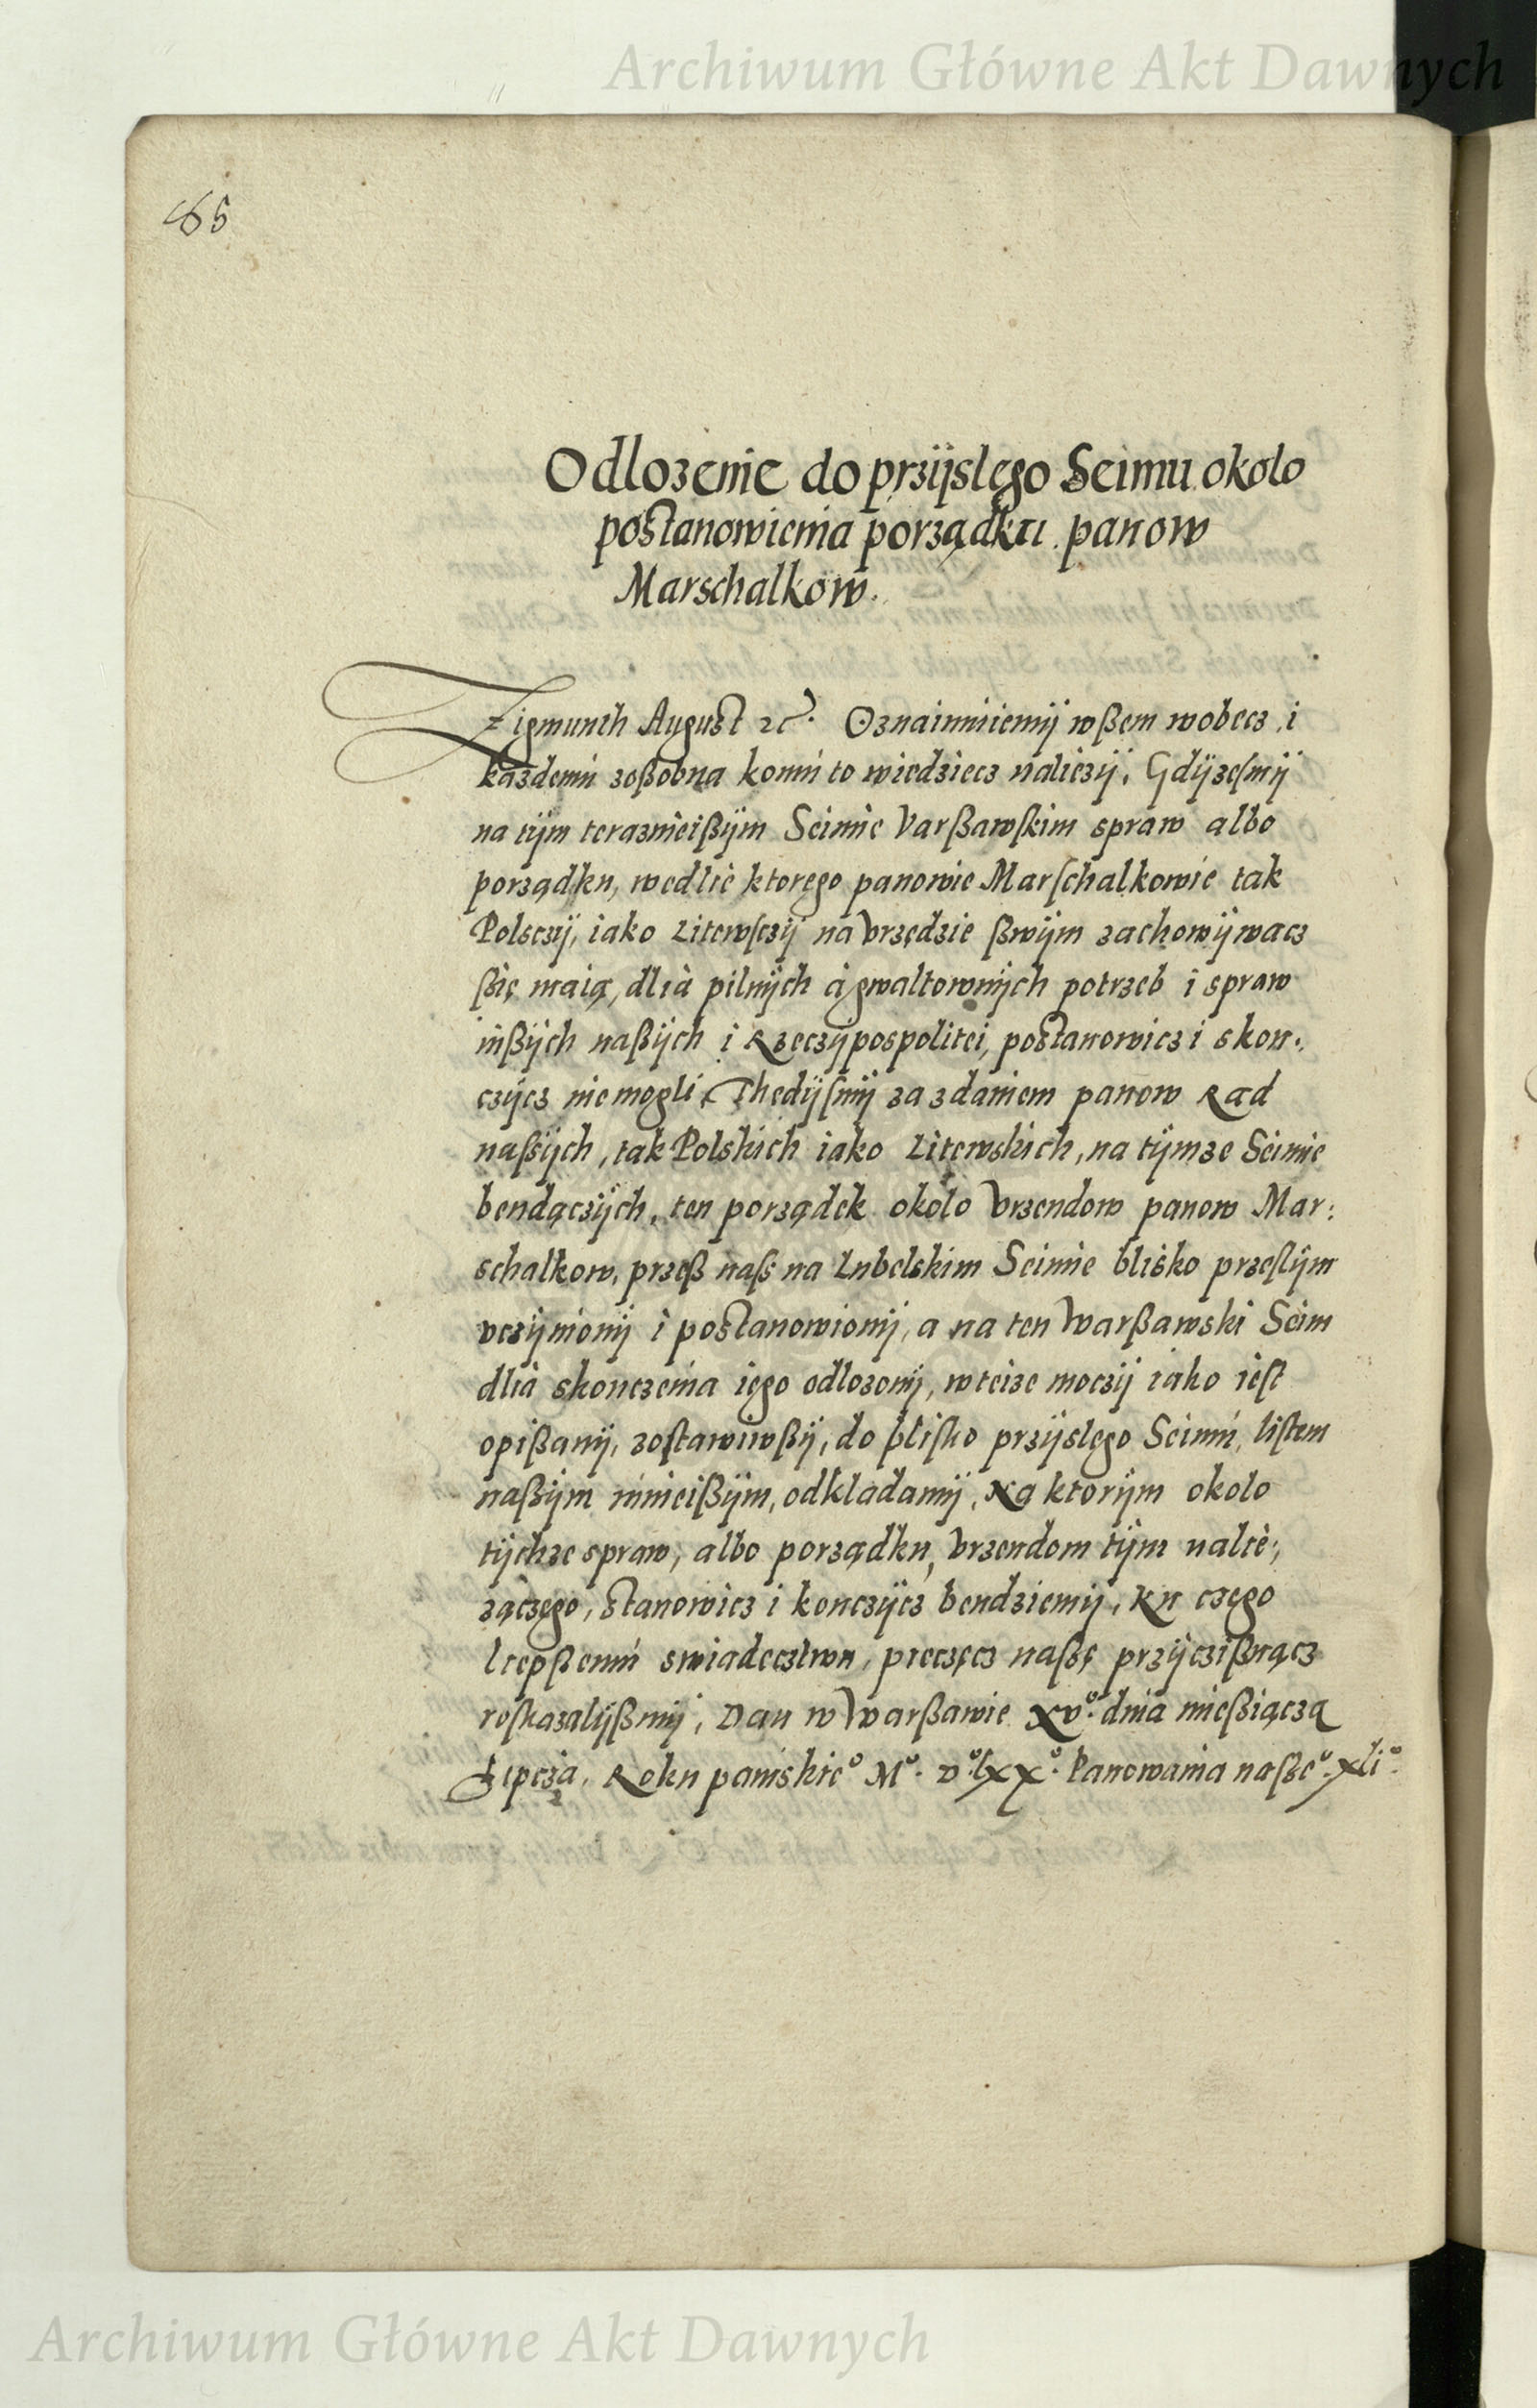 Archiwum Główne Akt Dawnych
865
Odlozenie do przijslego Seimu okolo
postanowienia porządku panow
Marschalkow.
Zigmunth August ꝛc. Oznaimuiemij wßem wobecz i
kazdemu zoßobna komu to wiedziecz naliezij, Gdijzesmij
na tijm teraznieißijm Seimie Varßawskim spraw albo
porządku, wedlie ktorego panowie Marschalkowie tak
Polsczij, iako Litewsczij na Vrzędzie ßwijm zachowijwacz
ßię maią, dlia pilnijch a gwaltownijch potrzeb i spraw
inßijch naßijch i Rzeczijpospolitei, postanowicz i skon:
czijcz nie mogli, Thedijsmij za zdaniem panow Rad
naßijch, tak Polskich iako Litewskich, na tijmze Seimie
bendączijch, ten porządek okolo Vrzendow panow Mar:
schalkow, przeß naß na Lubelskim Seimie blisko przeslijm
vczijnionij i postanowionij, a na ten Warßawski Seim
dlia skonczenia iego odlozonij, w teize moczij iako iest
opißanij, zostawiwßij, do blisko przijslego Seimu, listem
naßijm ninieißijm, odkladamij, Na ktorijm okolo
tijchze spraw, albo porządku, Vrzendom tijm nalie:
ząnczego, stanowicz i konczijcz bendziemij, Ku czego
liepßemu swiadecztwu, pieczęcz naßę przijczißnącz
roskazalijßmij, Dan w Warßawie XVº. dnia mießiącza
Lipcza, Roku panskieº Mº. Dº. lxxº. Panowania naßeº. xliº.
Archiwum Główne Akt Dawnych